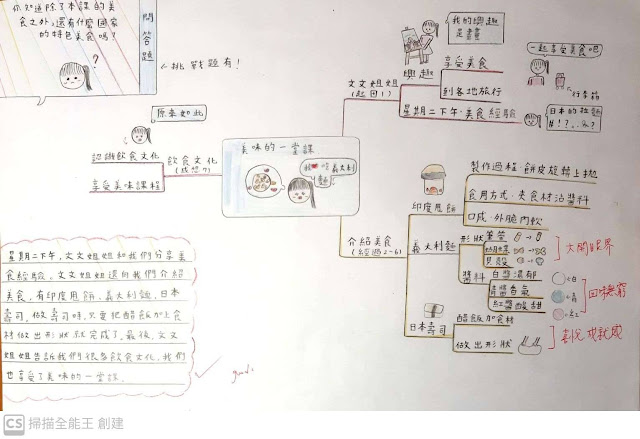 你知道除了本課的美
食之外,還有什麼國家
的特色美食嗎?
問答題
←挑戰題有!
原來如此
認識飲食文化
享受美味課程
飲食文化
(感想7)
美味的一堂課
我❤吃義大利
麵
文文姐姐
(起因1)
興趣
我的興趣
是畫畫
享受美食
到各地旅行
一起享受美食吧
行李箱
星期二下午-美食經驗
日本的拉麵
介紹美食
(經過2~6)
印度甩餅
製作過程-餅皮旋轉上拋
食用方式-夾食材沾醬料
口感-外脆內軟
義大利麵
形狀
筆管
蝴蝶
貝殼
大開眼界
醬料
白醬濃郁
青醬香氣
紅醬酸甜
白
青
紅
回味無窮
日本壽司
醋飯加食材
做出形狀
喜悅成就感
星期二下午,文文姐姐和我們分享美
食經驗,文文姐姐還向我們介紹
美食,有印度甩餅、義大利麵、日本
壽司,做壽司時,只要把醋飯加上食
材做出形狀就完成了。最後,文文
姐姐告訴我們很多飲食文化,我們
也享受了美味的一堂課。
good!
CS 掃描全能王 創建